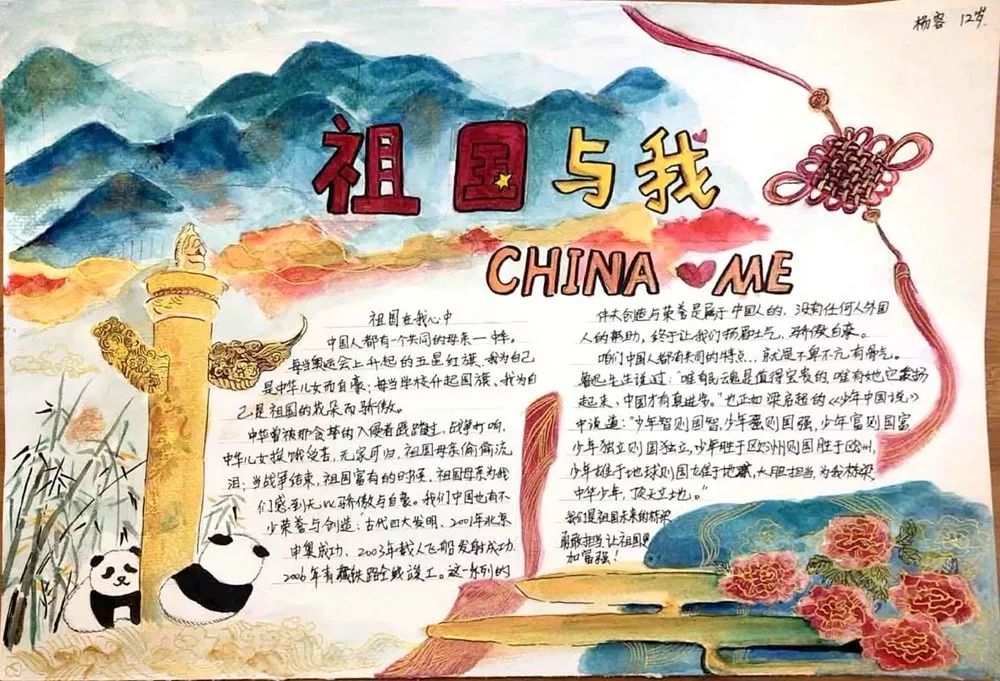 杨容 12岁
祖国与我
CHINA ME
祖国在我心中
中国人都有一个共同的母亲一中华。
每当奥运会上升起的五星红旗,我为自己
是中华儿女而自豪;每当学校升起国旗,我为自
己是祖国的花朵而骄傲。
中华曾被那贪婪的入侵者践踏过,战争打响,
中华儿女挨饿受害,无家可归,祖国母亲偷偷流
泪;当战争结束,祖国富有的时候,祖国母亲为我
们感到无比骄傲与自豪。我们中国也有不
少荣誉与创造:古代四大发明、2001年北京
申奥成功、2003年载人飞船发射成功、
2006年青藏铁路全线竣工。这一系列的
伟大创造与荣誉是属于中国人的,没有任何人外国
人的帮助,终于让我们扬眉土气,骄傲自豪。
咱们中国人都有共同的特点,就是不卑不亢有骨气。
鲁迅先生说过:"唯有民魂是值得宝贵的,唯有她它发扬
起来,中国才有真进步。"也正如梁启超的《少年中国说》
中说道:"少年智则国智,少年强则国强,少年富则国富
少年独立则国独立,少年胜于欧洲则国胜于欧洲,
少年雄于地球则国雄于地球,大胆担当,为我桥梁
中华少年,顶天立地。"
我们是祖国未来的桥梁
勇敢担当让祖国更
加富强!